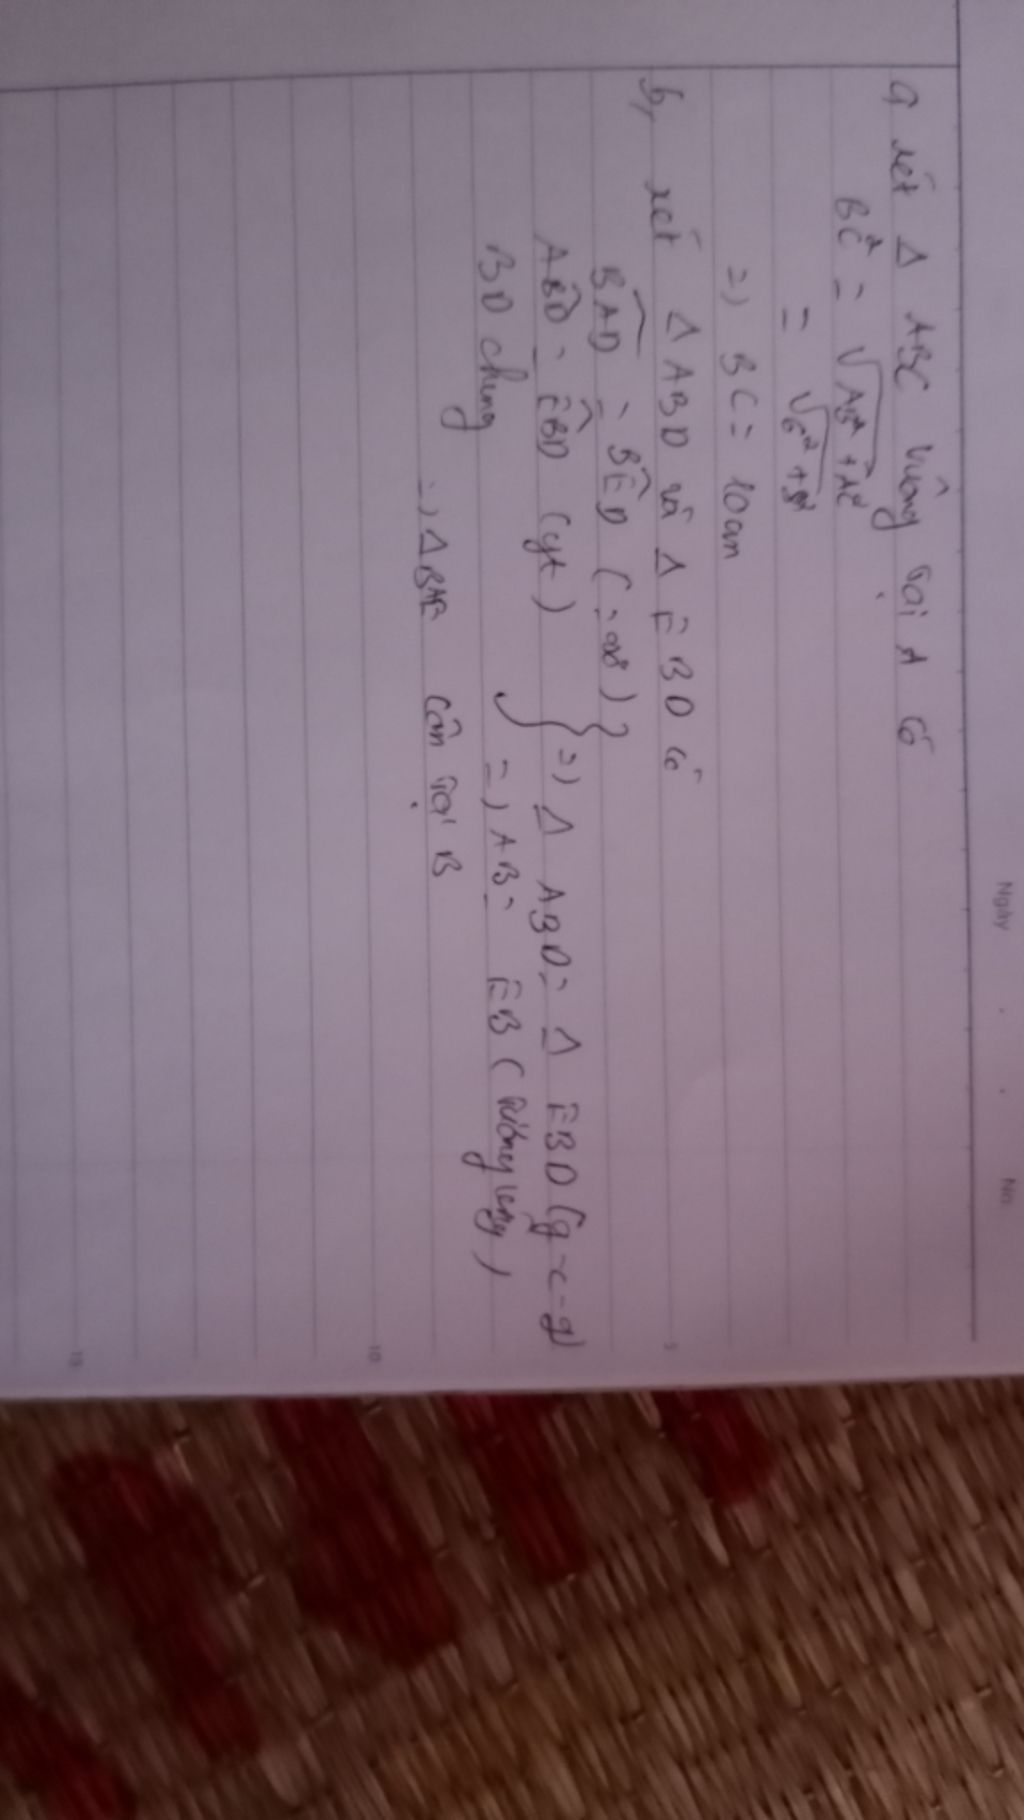 Ngày . . No.
a, xét Δ ABC vuông tại A có
BC² = √AB² + AC²
= √6² + 8²
=) BC = 10cm
b, xét Δ ABD và Δ EBD có
BAD = BED ( = 90°)
ABD = EBD (gt) } =) Δ ABD = Δ EBD (g-c-g)
BD chung =) AB = EB ( tương ứng )
=) Δ BAE cân tại B
5
10
15